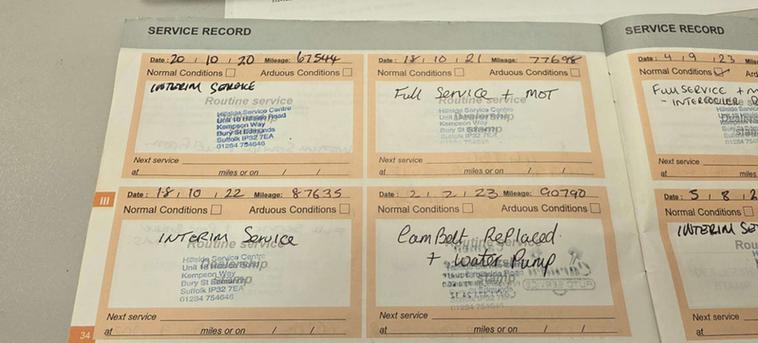 SERVICE RECORD
Date: 20 / 10 / 20 Mileage: 67544
Normal Conditions Arduous Conditions
INTERIM SERVICE
Routine service
Hillside Service Centre
Unit 10 Hillside Road
Kempson Way
Bury St Edmunds
Suffolk IP32 7EA
01284 754646
Next service
at miles or on / /
Date: 18 / 10 / 21 Mileage: 77698
Normal Conditions Arduous Conditions
Full Service + MOT
Routine service
Hillside Service Centre
Dealership
Kempson Way
Stamp
Bury St Edmunds
Suffolk IP32 7EA
01284 754646
Next service
at miles or on / /
III
Date: 18 / 10 / 22 Mileage: 87635
Normal Conditions Arduous Conditions
INTERIM Service
Routine service
Hillside Service Centre
Kempson Way
Bury St Edmunds
Suffolk IP32 7EA
01284 754646
Next service
at miles or on / /
Date: 2 / 2 / 23 Mileage: 90790
Normal Conditions Arduous Conditions
Cambelt Replaced
+ Water Pump
Next service
at miles or on / /
34
SERVICE RECORD
Date: 4 / 9 / 23
Normal Conditions
Full Service + M
- INTERCOOLER
Next service
at
Date: 5 / 8 / 2
Normal Conditions
INTERIM SE
Next service
at